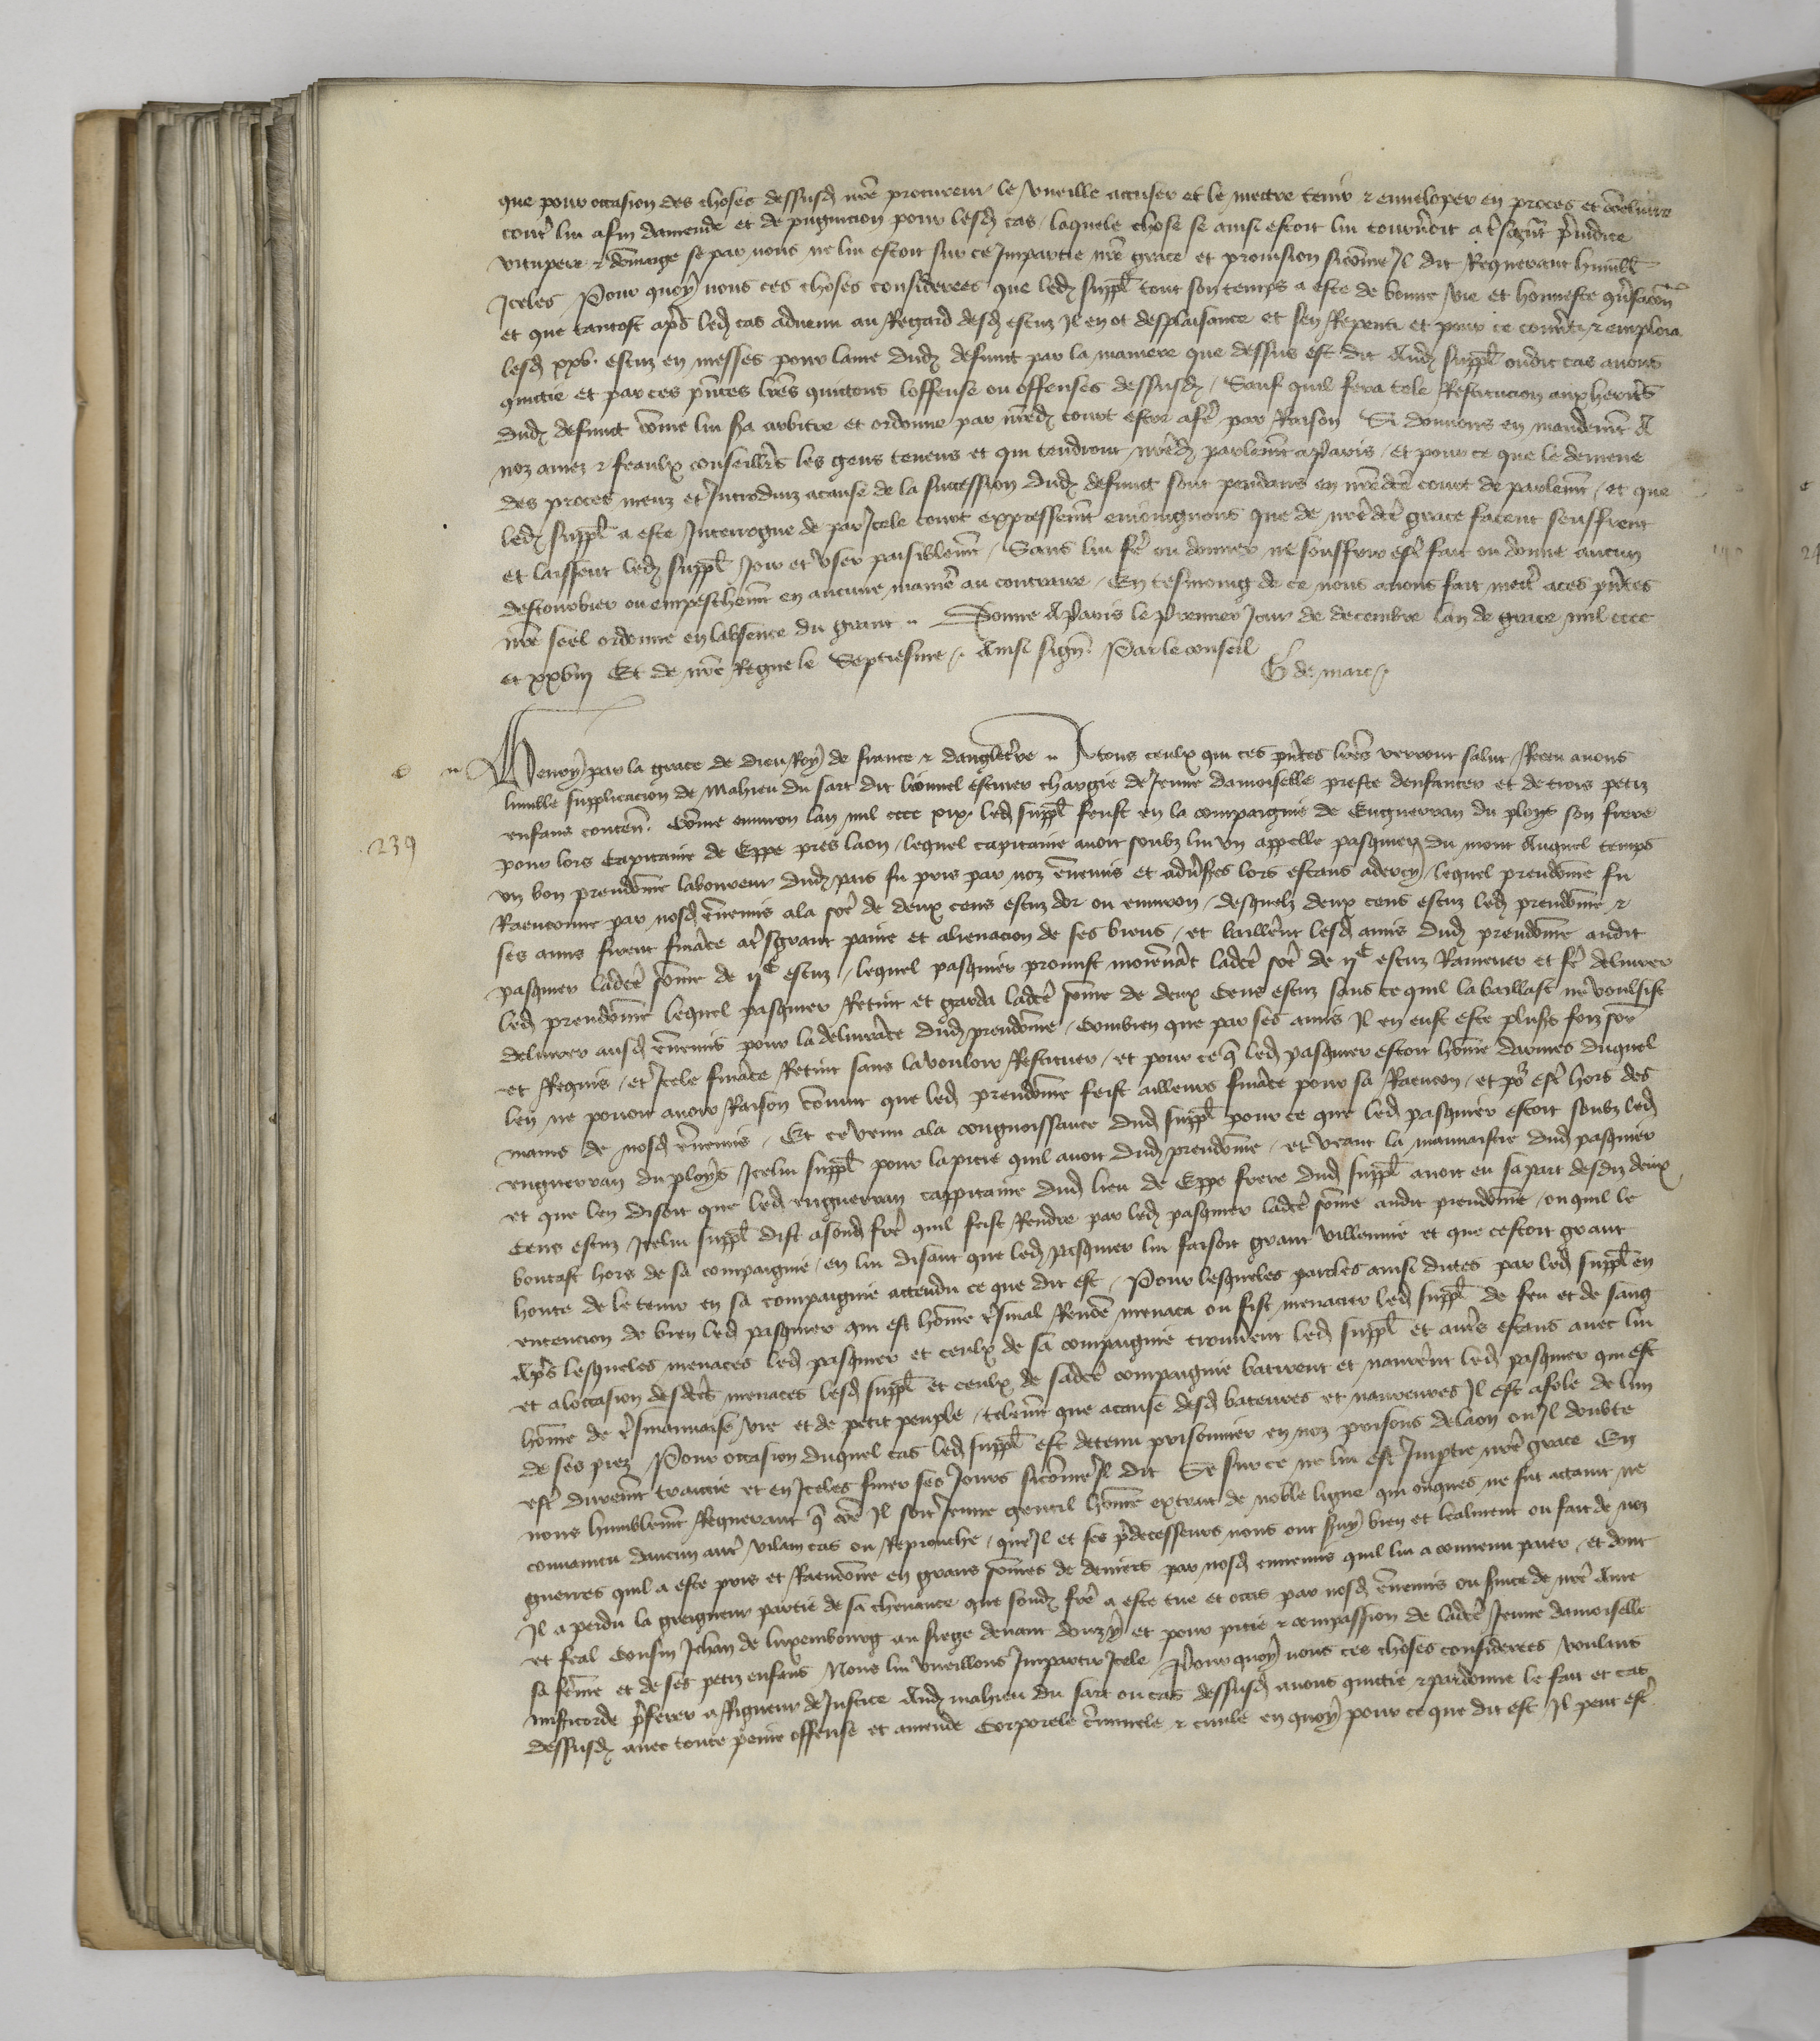 que pour occasion des choses dessusd nre procureur le vueille accuser et le mectre tenir & enveloper en proces et conclurre
contre lui afin damende et de pugnicion pour lesd cas laquele chose se ainsi estoit lui tourneroit a tresgrant preiudice
vitupere & dommage se par nous ne lui estoit sur ce Impartie nre grace et provision sicomme Il dit Requerant humbl
Iceles Pour quoy nous ces choses considerees que led suppl tout son temps a este de bonne vie et honneste conversacion
et que tantost apres led cas advenu au Regard desd escuz Il en ot desplaisance et sen Repenti et pour ce converti & emploia
lesd xxv escuz en messes pour lame dud defunct par la maniere que dessus est dit Aud suppl oudit cas avons
quictie et par ces presentes lres quictons loffense ou offenses dessusd Sauf quil fera tele Restitucion aux heritiers
dud defunct comme lui sera arbitre et ordonne par nred court estre a faire par Raison Si donnons en mandement A
noz amez & feaulx conseillers les gens tenens et qui tendront nred parlement a Paris Et pour ce que le demene
des proces meuz et Introduiz a cause de la succession dud defunct sont pendans en nredicte court de parlement et que
led suppl a este Interrogue de par Icele court expressement enioignons que de nredicte grace facent seuffrent
et laissent led suppl Joir et user paisiblement Sans lui faire ou donner ne souffrir estre fait ou donne aucun
destourbier ou empeschement en aucune maniere au contraire En tesmoing de ce nous avons fait mectre a ces presentes
nre seel ordonne en labsence du grant Donne A Paris le Premier Jour de decembre lan de grace mil cccc
et xxviii Et de nre Regne le Septiesme Ainsi signe Par le conseil
G de marc
Henry par la grace de dieu Roy de france & dangleterre A tous ceulx qui ces presentes lres verront salut Receu avons
239
humble supplicacion de Mahieu du sart dit Lionnel escuier chargie de Jeune damoiselle preste denfanter et de trois petiz
enfans contenant Comme environ lan mil cccc xix led suppl feust en la compaignie de Enguerran du ploys son frere
pour lors Capitaine de Eppe pres laon lequel capitaine avoit soubz lui un appelle pasquier du mont Auquel temps
un bon preudomme laboureur dud pais fu pris par noz ennemis et adversaires lors estans a dercy lequel preudomme fu
Raenconne par nosd ennemis a la some de deux cens escuz dor ou environ desquelz deux cens escuz led preudomme &
ses amis firent finance a tresgrant paine et alienacion de ses biens et baillerent lesd amis dud preudomme audit
pasquier ladicte somme de iic escuz lequel pasquier promist moiennant ladicte some de iic escuz Ramener et faire delivrer
led preudomme lequel pasquier Retint et garda ladicte somme de deux Cens escuz sans ce quil la baillast ne voulsist
delivrer ausd ennemis pour la delivrance dud preudomme Combien que par ses amis Il en eust este plusrs foiz somme
et Requis et Icele finance Retint sans la vouloir Restituer et pour ce que led pasquier estoit homme darmes duquel
len ne povoit avoir Raison convint que led preudomme feist ailleurs finance pour sa Raencon et pour estre hors des
mains de nosd ennemis Et ce venu a la congnoissance dud suppl pour ce que led pasquier estoit soubz led
enguerran du ploys Icelui suppl pour la pitie quil avoit dud preudomme et veant la mauvaistie dud pasquier
et que len disoit que led enguerran cappitaine dud lieu de Eppe frere dud suppl avoit eu sa part desdiz deux
Cens escuz Icelui suppl dist a sond frere quil feist Rendre par led pasquier ladicte somme audit preudomme ou quil le
boutast hors de sa compaignie en lui disant que led pasquier lui faisoit grant villennie et que cestoit grant
honte de le tenir en sa compaignie attendu ce que dit est Pour lesqueles paroles ainsi dictes par led suppl en
entencion de bien led pasquier qui est homme tresmal Renomme menaca ou fist menacier led suppl de feu et de sang
Apres lesqueles menaces led pasquier et ceulx de sa compaignie trouverent led suppl et autres estans avec lui
et a loccasion desdictes menaces lesd suppl et ceulx de sadicte compaignie batirent et navrerent led pasquier qui est
homme de tresmauvaise vie et de petit peuple telement que a cause desd bateures et navreures Il est afole de lun
de ses piez Pour occasion duquel cas led suppl est detenu prisonnier en noz prisons de laon ou Il doubte
estre durement traictie et en Iceles finer ses Jours sicomme Il dit Se sur ce ne lui est Impartie nre grace En
nous humblement Requerant que comme Il soit Jeune gentil homme extrait de noble ligne qui onques ne fut actaint ne
convaincu daucun autre vilain cas ou Reprouche que Il et ses predecesseurs nous ont servy bien et lealment ou fait de noz
guerres quil a este pris et Raenconne en grans sommes de deniers par nosd ennemis quil lui a convenu paier et dont
Il a perdu la greigneur partie de sa chevance que sond frere a este tue et occis par nosd ennemis ou service de nre Ame
et feal Cousin Jehan de luxembourg au siege devant douzy et pour pitie & compassion de ladicte Jeune damoiselle
sa femme et de ses petiz enfans Nous lui vueillons Impartir Icele Pour quoy nous ces choses considerees voulans
misericorde preferer a Rigueur de Justice Aud mahieu du sart ou cas dessusd avons quictie & pardonne le fait et cas
dessusd avec toute peine offense et amende Corporele criminele & civile en quoy pour ce que dit est Il peut estre